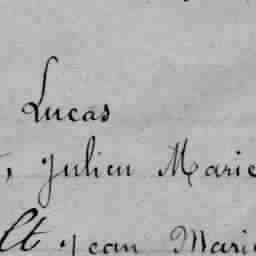 Lucas
, Julien Marie
lt Jean Marie